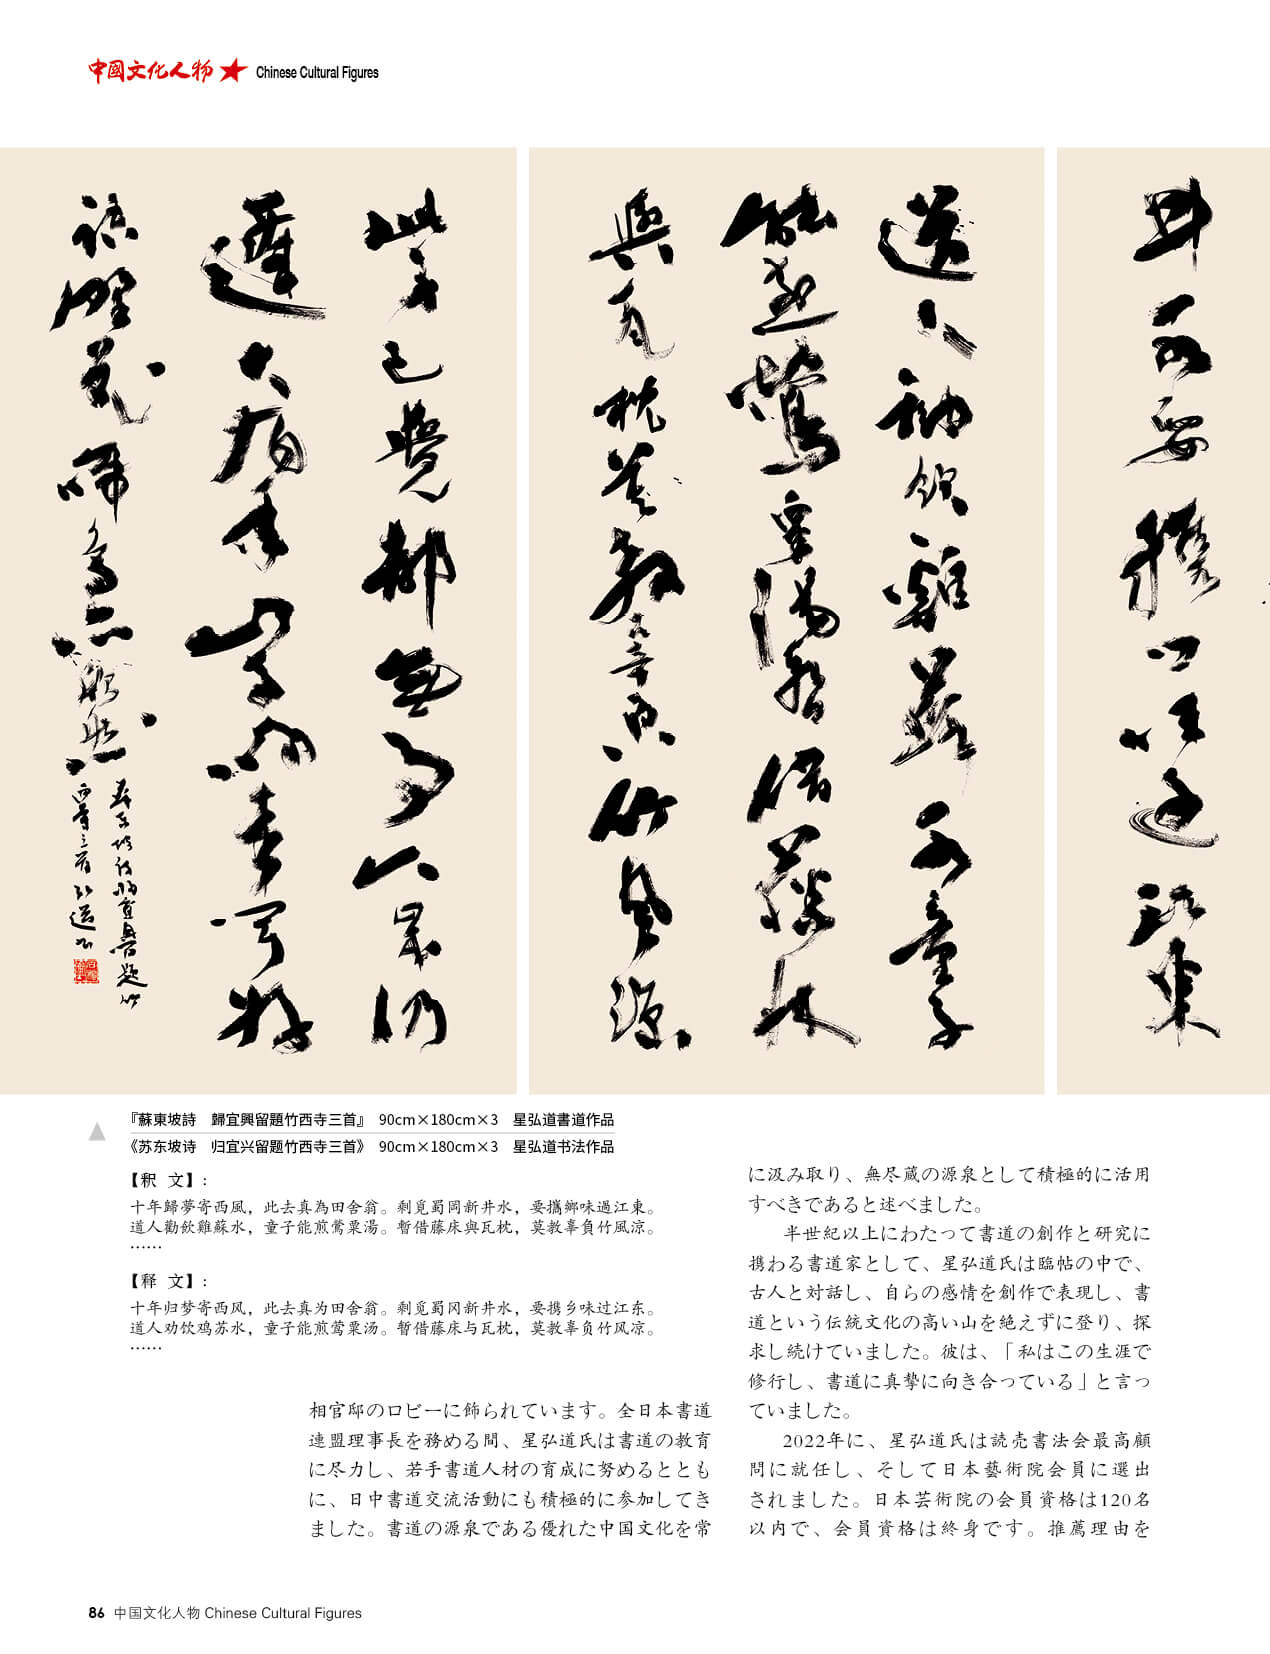 中國文化人物 Chinese Cultural Figures
井水要攜味過江東
道人勸飲雞蘇水童子
能煎鶯粟湯暫借藤床
與瓦枕莫教辜負竹風涼
此生已覺都無事今歲仍
逢大有年山寺歸來聞好
語野花啼鳥亦欣然
蘇東坡詩歸宜興留題竹
西寺三首 弘道
『蘇東坡詩　歸宜興留題竹西寺三首』　90cm×180cm×3　星弘道書道作品
《苏东坡诗　归宜兴留题竹西寺三首》　90cm×180cm×3　星弘道书法作品
【釈 文】：
十年歸夢寄西風，此去真為田舍翁。剩覓蜀岡新井水，要攜鄉味過江東。
道人勸飲雞蘇水，童子能煎鶯粟湯。暫借藤床與瓦枕，莫教辜負竹風涼。
……
【释 文】：
十年归梦寄西风，此去真为田舍翁。剩觅蜀冈新井水，要携乡味过江东。
道人劝饮鸡苏水，童子能煎莺粟汤。暂借藤床与瓦枕，莫教辜负竹风凉。
……
相官邸のロビーに飾られています。全日本書道
連盟理事長を務める間、星弘道氏は書道の教育
に尽力し、若手書道人材の育成に努めるととも
に、日中書道交流活動にも積極的に参加してき
ました。書道の源泉である優れた中国文化を常
に汲み取り、無尽蔵の源泉として積極的に活用
すべきであると述べました。
半世紀以上にわたって書道の創作と研究に
携わる書道家として、星弘道氏は臨帖の中で、
古人と対話し、自らの感情を創作で表現し、書
道という伝統文化の高い山を絶えずに登り、探
求し続けていました。彼は、「私はこの生涯で
修行し、書道に真摯に向き合っている」と言っ
ていました。
2022年に、星弘道氏は読売書法会最高顧
問に就任し、そして日本藝術院会員に選出
されました。日本芸術院の会員資格は120名
以内で、会員資格は終身です。推薦理由を
86 中国文化人物 Chinese Cultural Figures